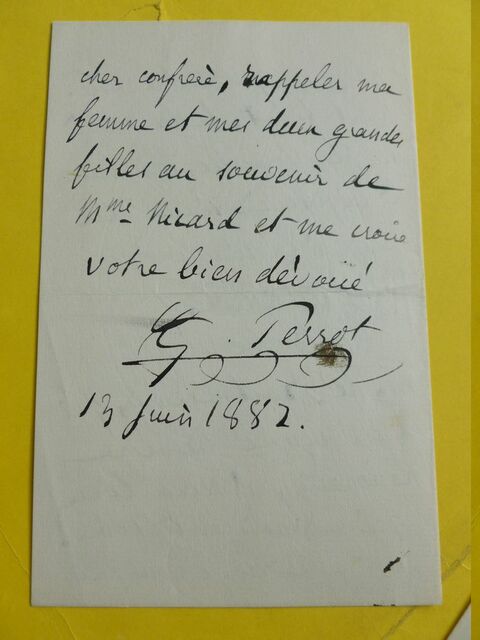 cher confrère, rappeler ma
femme et mes deux grandes
filles au souvenir de
Mme Nicard et me croire
votre bien dévoué
G. Perrot
13 Juin 1882.